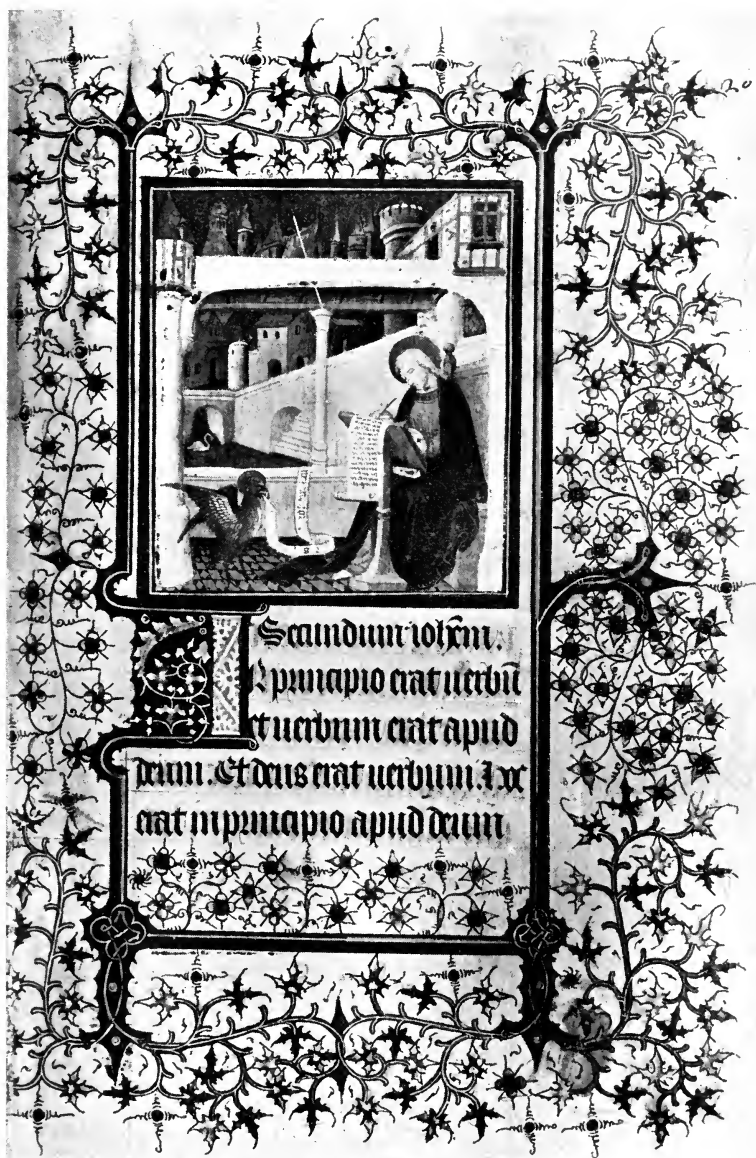 Secundum ioh̄em.
IN principio erat uerbū
et uerbum erat apud
deum. Et deus erat uerbum. hoc
erat in principio apud deum